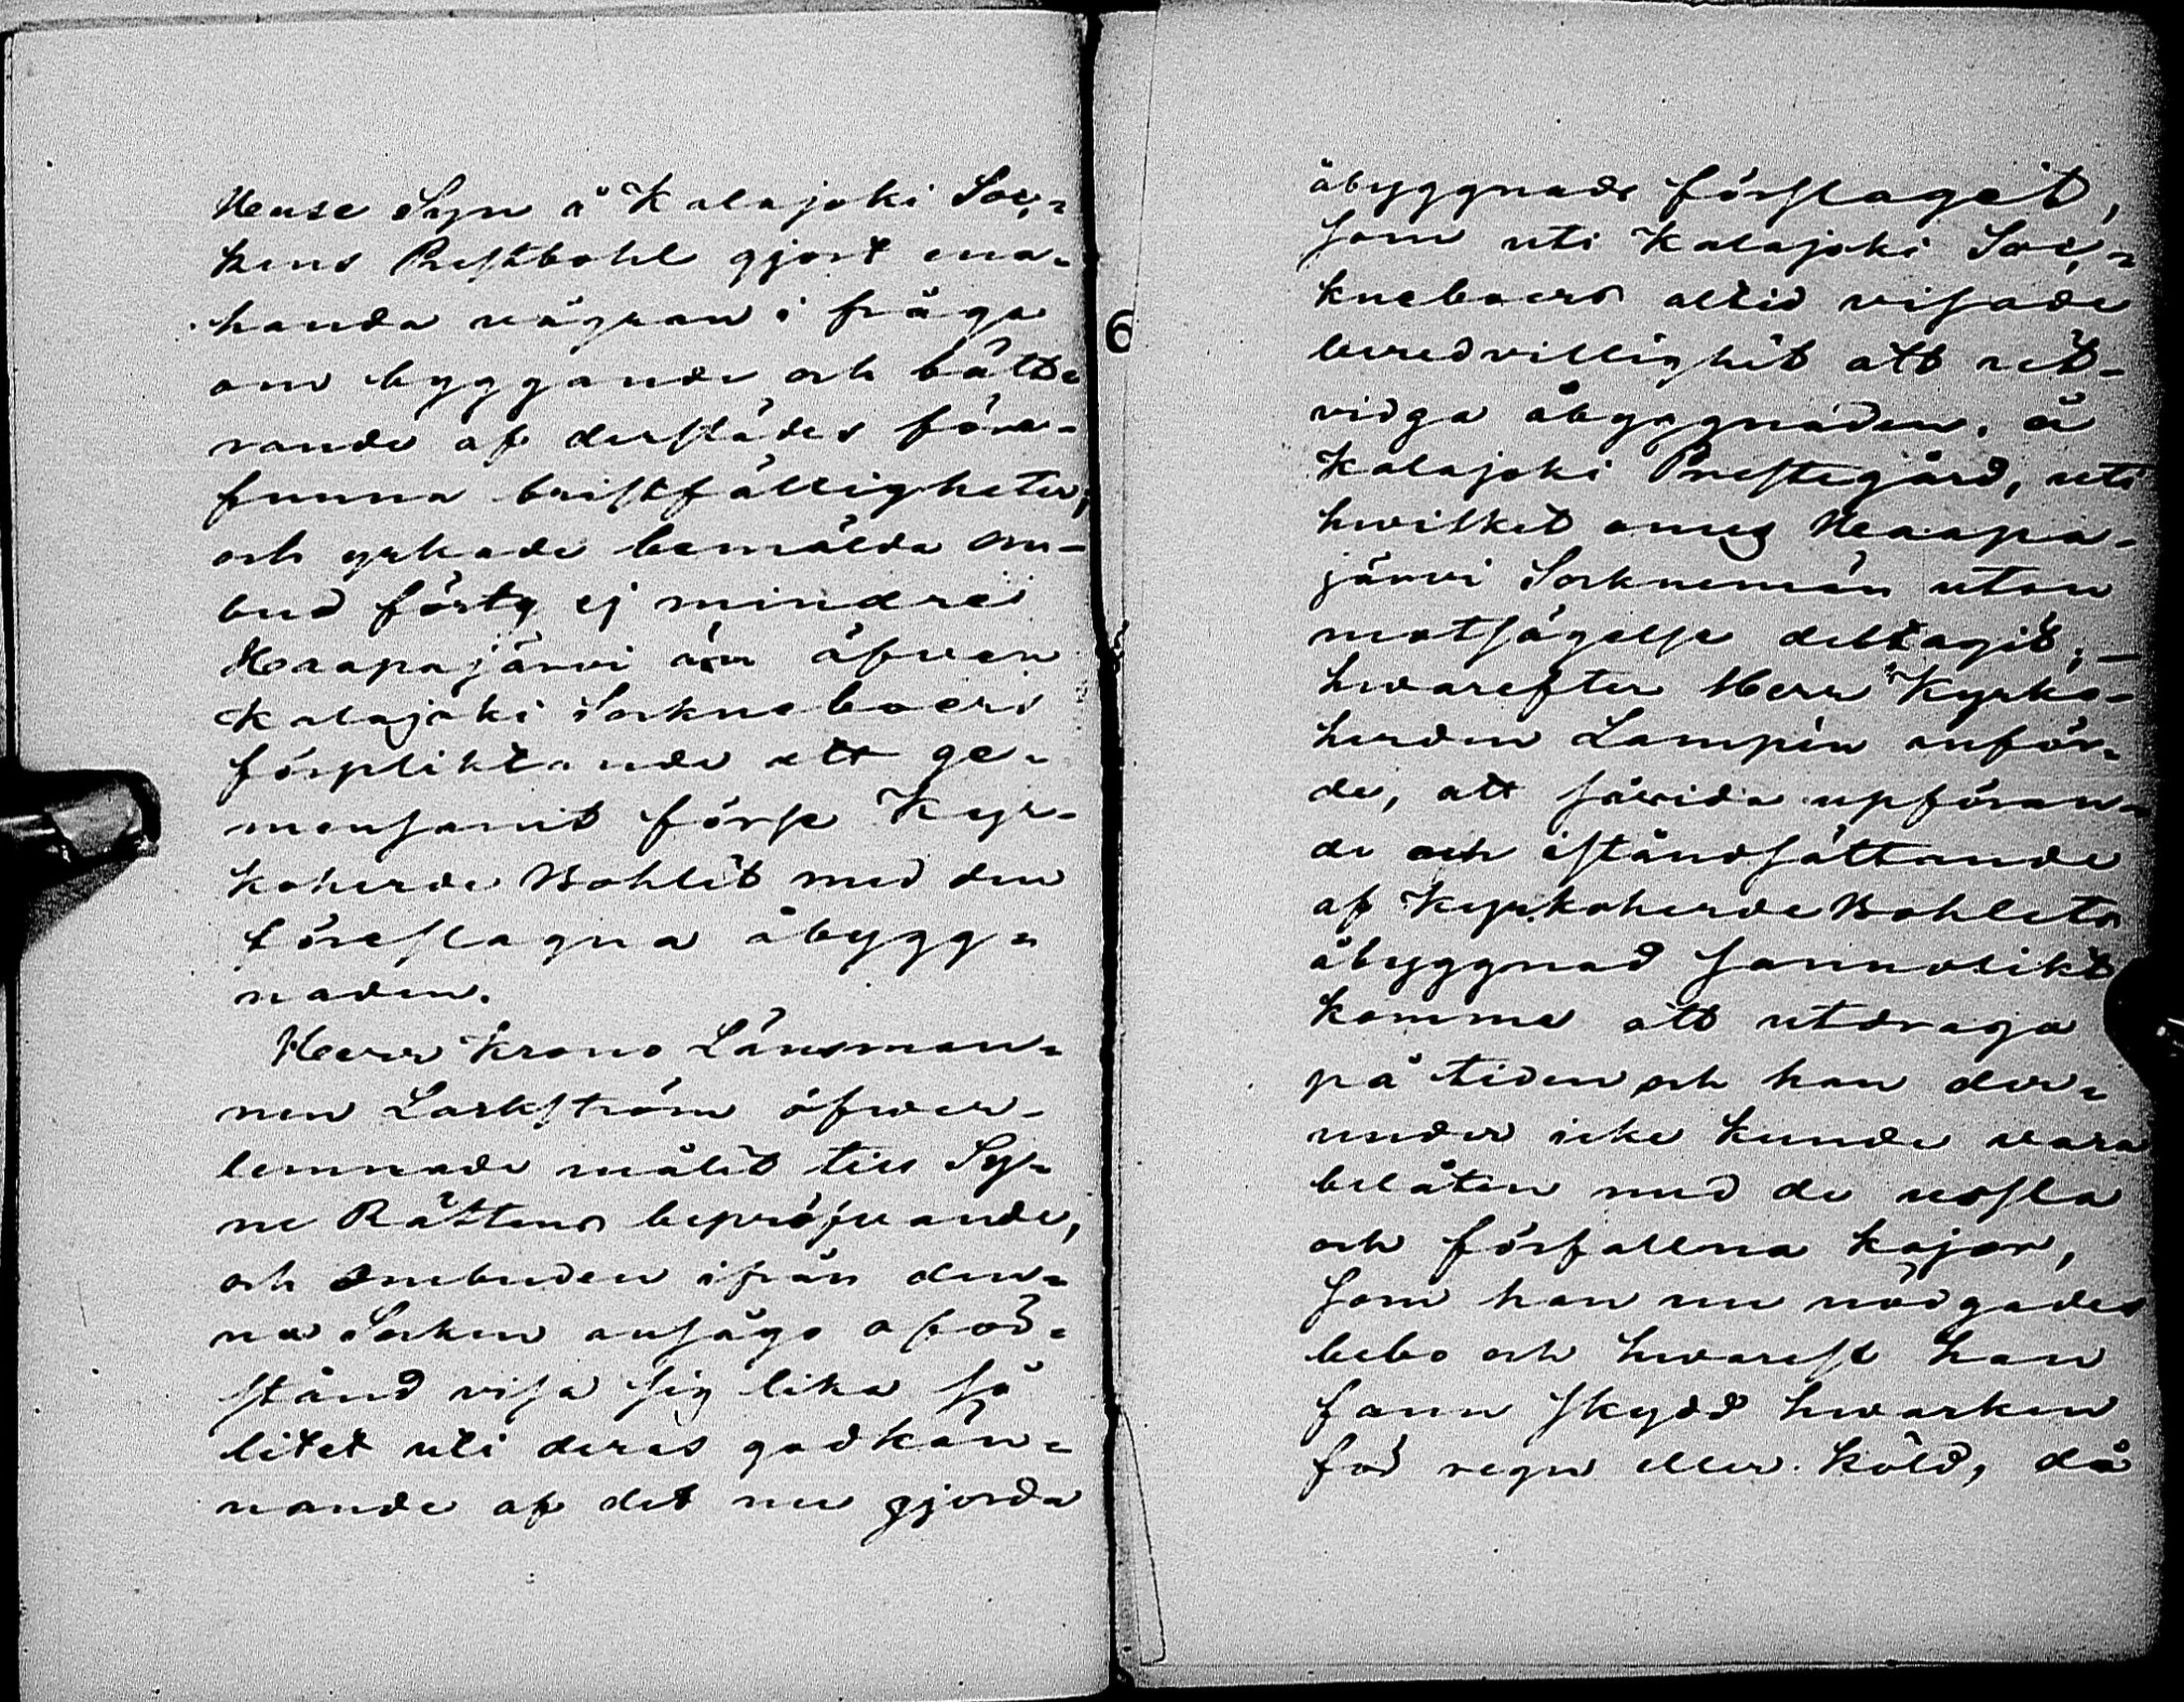 Huse Syn å Kalajoki Soc-
kens Prestbohl gjort ena-
handa vägran i fråga
om byggande och bätt-
rande af derstädes före-
funna bristfälligheter,
och yrkade bemälda Om-
bud förty ej mindre
Haapajärvi än äfven
Kalajoki Sockneboers
förpliktande att ge-
mensamt förse Kyr-
koherde Bohlit med den
föreslagna åbygg-
naden.
Herr Krono Länsman-
nen Lackström öfver-
lemnade målet till Sy-
ne Rättens bepröfvande,
och Ombuden ifrån den-
na Socken ansågo
stånd visa sig lika så
litet uti deras godkän-
nande af det nu gjorda
6
åbyggnads förslaget,
som uti Kalajoki Soc-
kneboers altid visade
beredvillighet att ut-
vidga åbyggnaden å
Kalajoki Prestegård, uti
hvilket omsg Haapa-
järvi Socknemän utan
motsägelse deltagit; —
hvarefter Herr Kyrko-
herden Lampén anför-
de, att såvida upföran-
de och iståndsättande
af Kyrkoherde Bohlets
åbyggnad sannolikt
komme att utdraga
på tiden och han der-
under icke kunde vara
belåten med de usla
och förfallna kojor,
som han nu nödgades
bebo och hvarest han
fann skydd hvarken
för regn eller köld, då